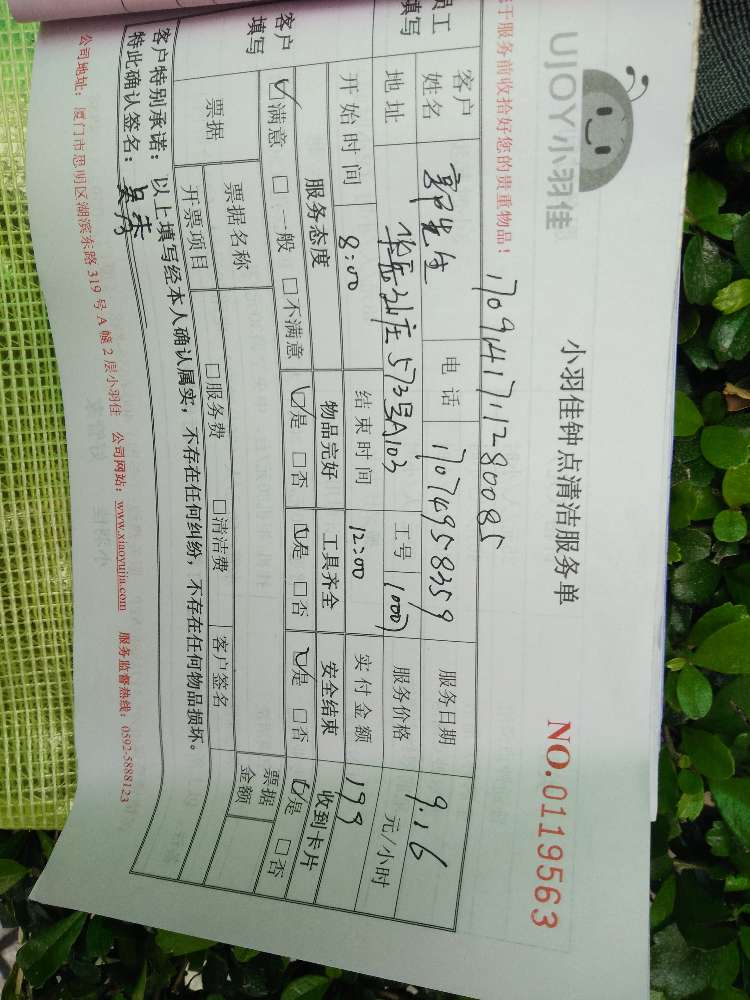 UJOY小羽佳
小羽佳钟点清洁服务单
NO.0119563
于服务前收拾好您的贵重物品！
170941711280085
员工填写
客户姓名 郭先生 电话 17074958359 服务日期 9.16
地址 573号A103 工号 服务价格 元/小时
开始时间 8:00 结束时间 12:00 实付金额 199
客户填写
服务态度 物品完好 工具齐全 安全结束 收到卡片
☑满意 □一般 □不满意 ☑是 □否 ☑是 □否 ☑是 □否 ☑是 □否
票据 票据名称 □服务费 □清洁费 票据金额
开票项目 客户签名
客户特别承诺：以上填写经本人确认属实，不存在任何纠纷，不存在任何物品损坏。
特此确认签名：
公司地址：厦门市思明区湖滨东路319号A幢2层小羽佳 公司网站：www.xiaoyujia.com 服务监督热线：0592-5888123